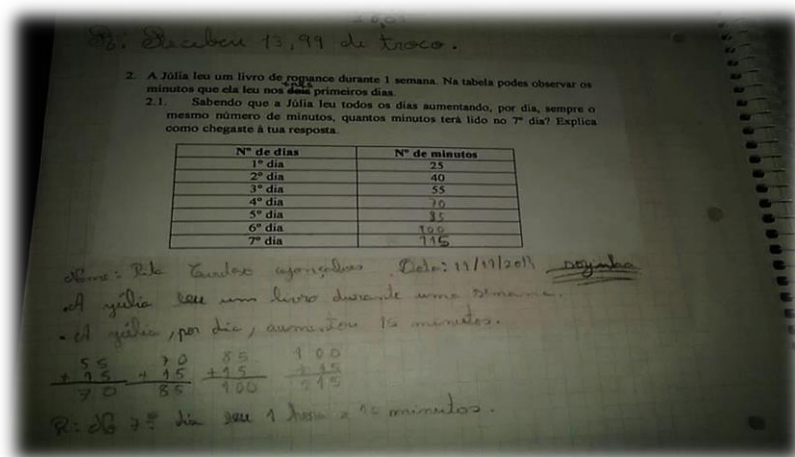 R: Recebeu 13,99 de troco.
2. A Júlia leu um livro de romance durante 1 semana. Na tabela podes observar os
três
minutos que ela leu nos dois primeiros dias.
2.1. Sabendo que a Júlia leu todos os dias aumentando, por dia, sempre o
mesmo número de minutos, quantos minutos terá lido no 7º dia? Explica
como chegaste à tua resposta.
Nº de dias Nº de minutos
1º dia 25
2º dia 40
3º dia 55
4º dia 70
5º dia 85
6º dia 100
7º dia 115
Nome: Rita Gonçalves Data: 11/11/2015 sozinha
• A júlia leu um livro durante uma semana.
• A júlia, por dia, aumentou 15 minutos.
55 70 85 100
+ 15 + 15 + 15 + 15
70 85 100 115
R: No 7º dia leu 1 hora e minutos.